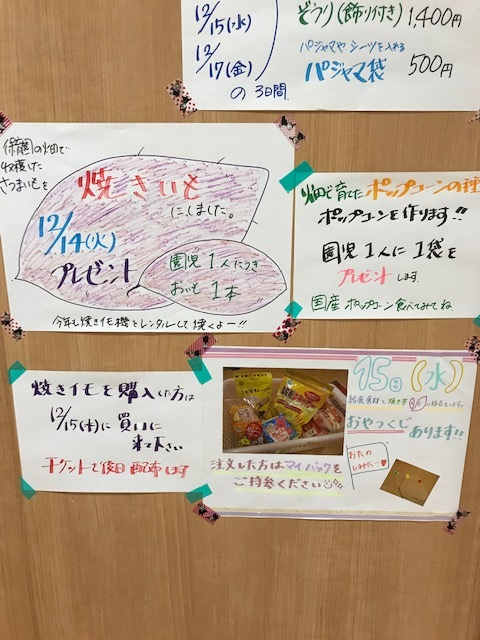 12/15(水)
12/17(金)
の3日間
ぞうり(飾り付き) 1,400円
パジャマや シーツを入れる
パジャマ袋 500円
保育園の畑で
収穫した
さつまいもを
焼きいも
にしました。
12/14(火)
プレゼント
園児1人につき
おいも 1本
今年も焼き芋機をレンタルして焼くよー!!
畑で育てたポップコーンの種
ポップコーンを作ります!!
園児1人に1袋を
プレゼントします
国産ポップコーン食べてみてね
焼き芋を購入した方は
12/15(水)に買いに
来て下さい
チケットで後日配布します
15日(水)
おやつくじ
あります!!
おたの
しみに…
注文した方はマイバックを
ご持参ください